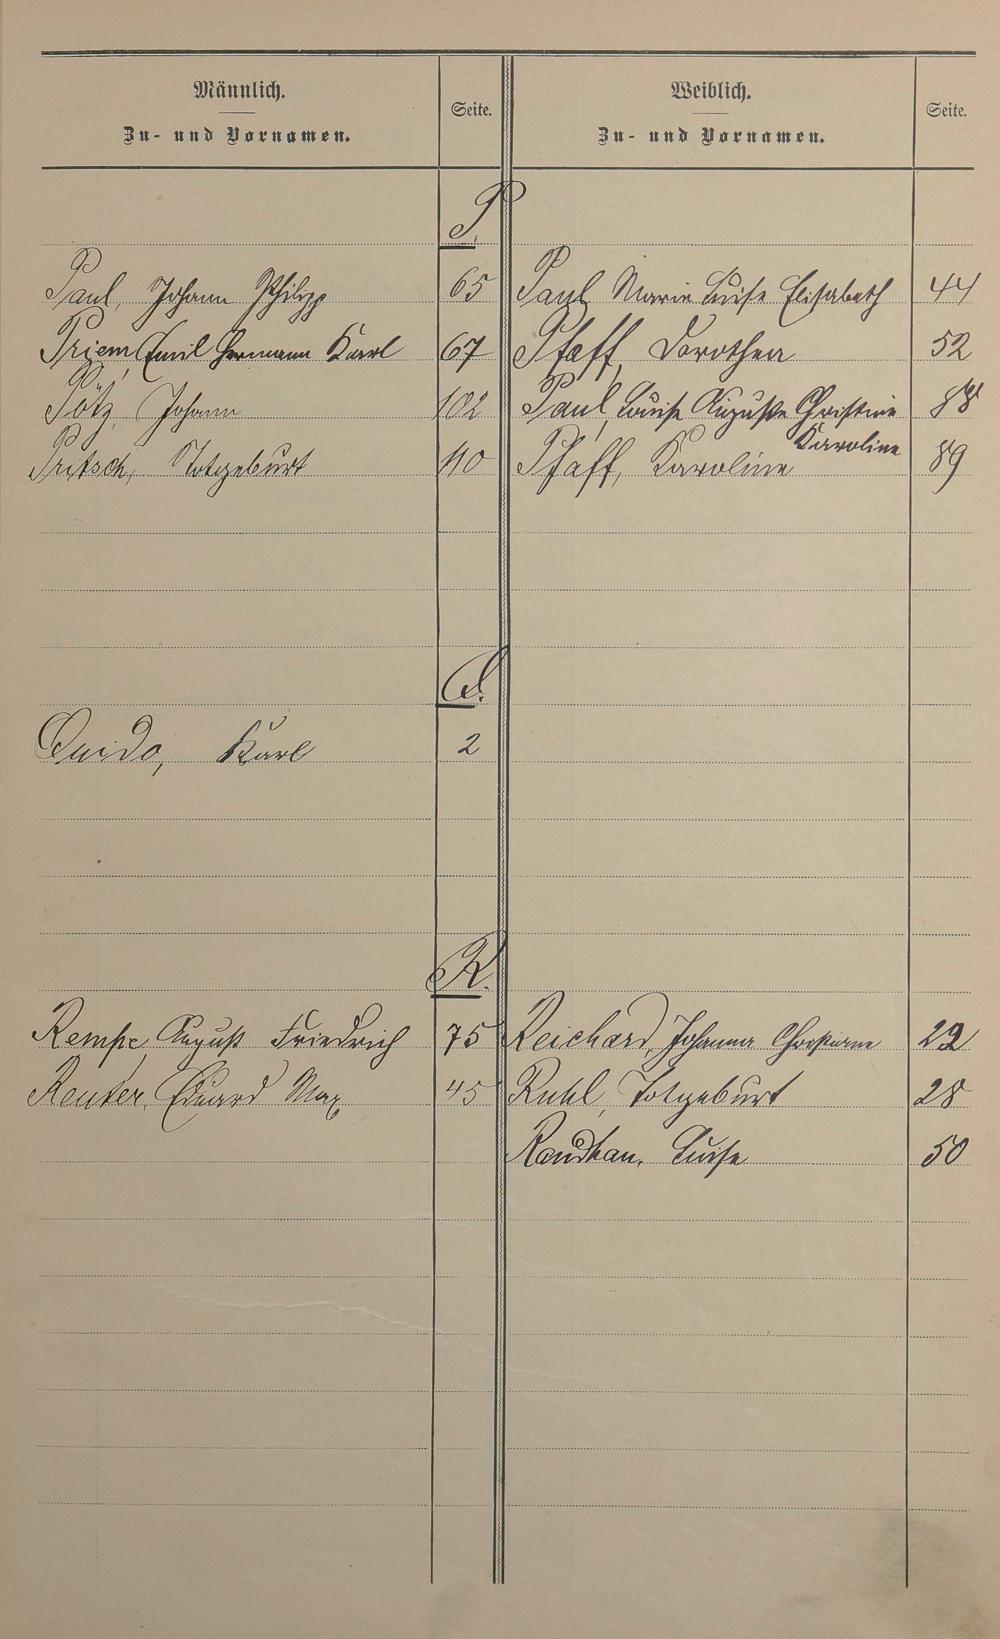 Männlich.
Zu- und Vornamen.
Seite.
Weiblich.
Zu- und Vornamen.
Seite.
P.
Paul, Johann Philipp 65 Paul, Marie Luise Elisabeth 44
Priem, Emil Hermann Karl 67 Pfaff, Dorothea 52
Pötz, Johann 102 Paul, Louise Auguste Christine 88
Karoline
Pritsch, Totgeburt 110 Pfaff, Karoline 89
Q.
Quido, Karl 2
R.
Rempe, August Friedrich 75 Reichard, Johanna Christiane
Reuter, Eduard Max 45 Ruhl, Totgeburt 28
Luise 50